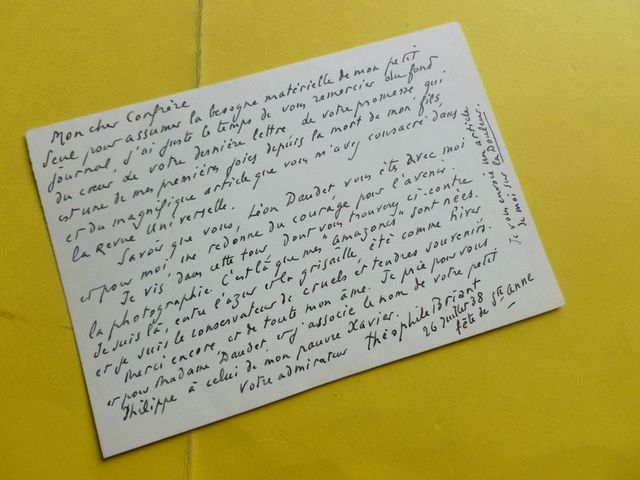 Mon cher Confrère
Seul pour assumer la besogne matérielle de mon petit
Journal, j'ai juste le temps de vous remercier du fond
du cœur de votre dernière lettre, de votre promesse qui
est une de mes premières joies depuis la mort de mon fils,
et du magnifique article que vous m'avez consacré dans
la Revue Universelle.
Savoir que vous, Léon Daudet vous êts avec moi
et pour moi, me redonne du courage pour l'avenir.
Je vis dans cette tour dont vous trouverez ci-contre
la photographie. C'est là que mes "amazones" sont nées.
Je suis là, entre l'azur et la grisaille, été comme hiver
et je suis le conservateur de cruels et tendres souvenirs.
Merci encore et de toute mon âme. Je prie pour vous
et pour Madame Daudet et j'associe le nom de votre petit
Philippe à celui de mon pauvre Xavier.
votre admirateur Théophile Briant
26 Juillet 38
fête de Ste Anne
Je vous envoie un article
de moi sur la Douleur.